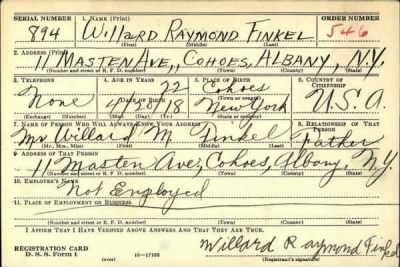 SERIAL NUMBER 1. NAME (Print) ORDER NUMBER
894 WILLARD RAYMOND FINKEL 546
(First) (Middle) (Last)
2. ADDRESS (Print)
11 MASTEN AVE., COHOES, ALBANY, N.Y.
(Number and street or R. F. D. number) (Town) (County) (State)
3. TELEPHONE 4. AGE IN YEARS 5. PLACE OF BIRTH 6. COUNTRY OF CITIZENSHIP
22 Cohoes
None DATE OF BIRTH (Town or county) U.S.A.
4 20 18 New York
(Exchange) (Number) (Mo.) (Day) (Yr.) (State or country)
7. NAME OF PERSON WHO WILL ALWAYS KNOW YOUR ADDRESS 8. RELATIONSHIP OF THAT PERSON
Mr Willard M Finkel Father
(Mr., Mrs., Miss) (First) (Middle) (Last)
9. ADDRESS OF THAT PERSON
11 Masten Ave., Cohoes, Albany, N.Y.
(Number and street or R. F. D. number) (Town) (County) (State)
10. EMPLOYER'S NAME
Not Employed
11. PLACE OF EMPLOYMENT OR BUSINESS
(Number and street or R. F. D. number) (Town) (County) (State)
I AFFIRM THAT I HAVE VERIFIED ABOVE ANSWERS AND THAT THEY ARE TRUE.
REGISTRATION CARD
D. S. S. Form 1 16—17105 Willard Raymond Finkel
(Registrant's signature)